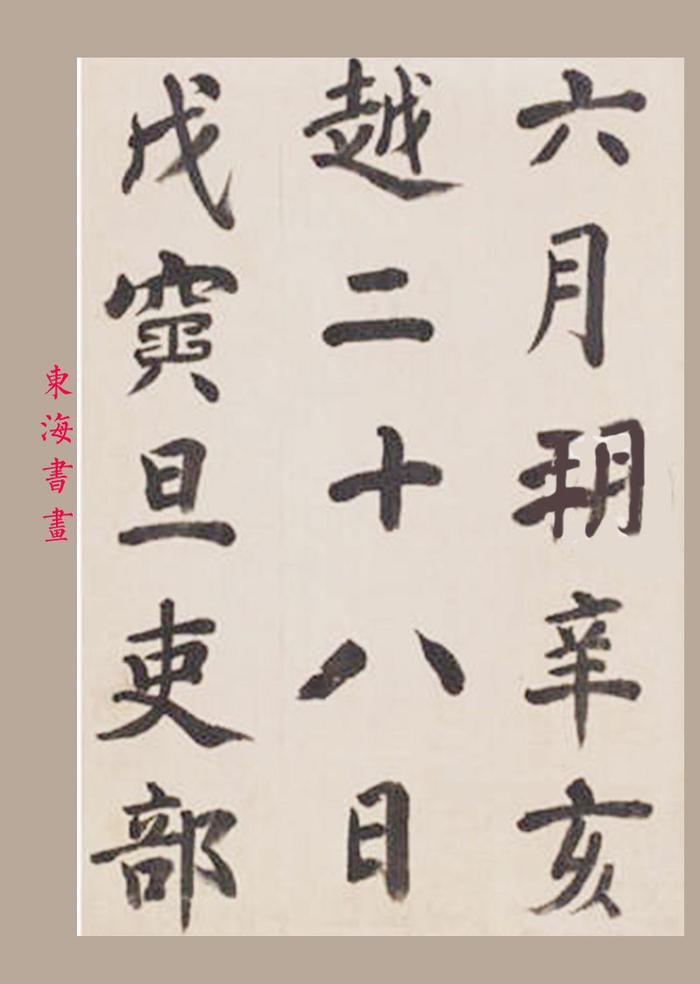 六月朔辛亥
越二十八日
戊寅旦吏部
東海書畫